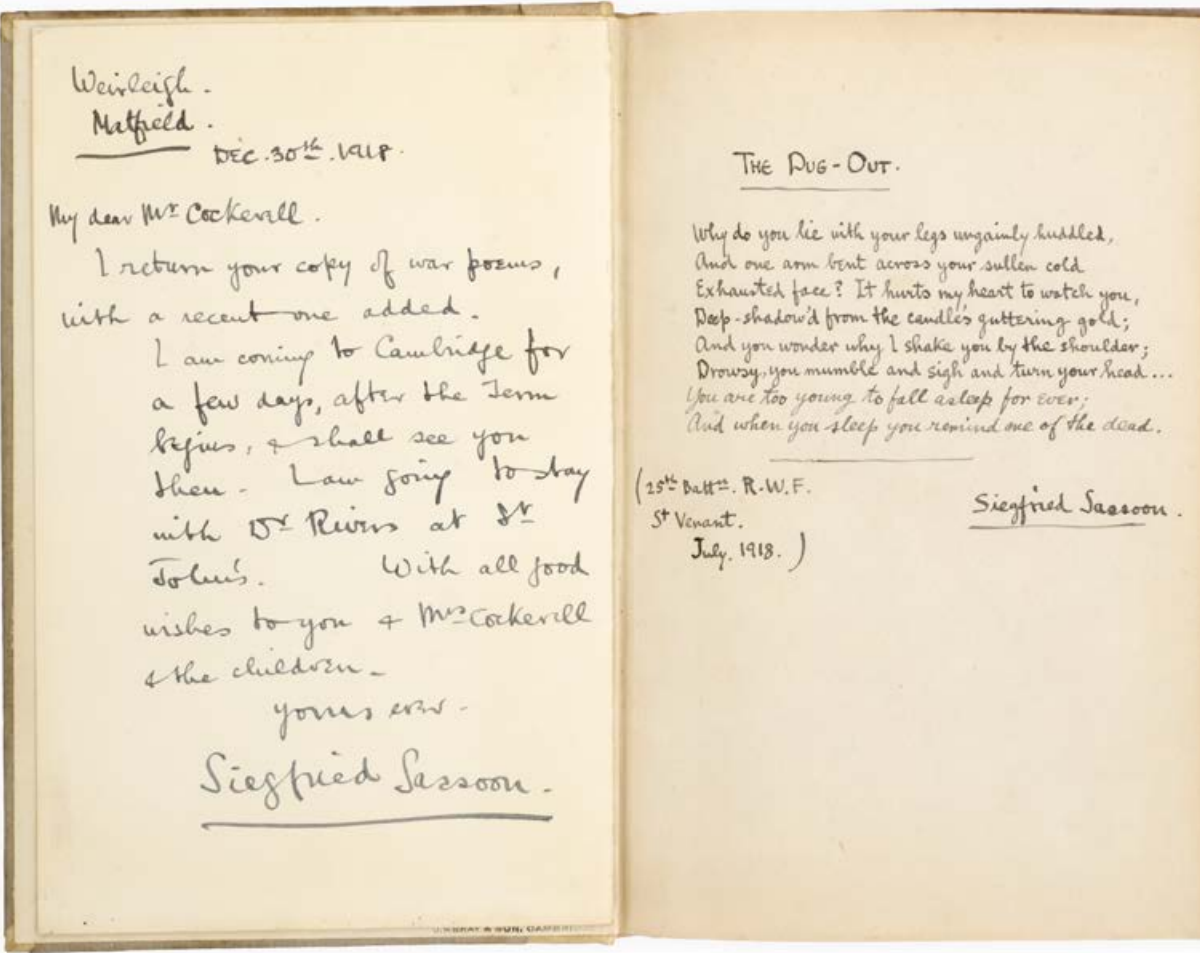 Weirleigh.
Matfield.
DEC. 30th. 1918.
My dear Mr Cockerell.
I return your copy of war poems,
with a recent one added.
I am coming to Cambridge for
a few days, after the Term
begins, & shall see you
then. I am going to stay
with Dr Rivers at St
John's. With all good
wishes to you & Mrs Cockerell
& the children –
yours ever –
Siegfried Sassoon.
THE DUG-OUT.
Why do you lie with your legs ungainly huddled,
And one arm bent across your sullen cold
Exhausted face? It hurts my heart to watch you,
Deep-shadow'd from the candle's guttering gold;
And you wonder why I shake you by the shoulder;
Drowsy, you mumble and sigh and turn your head...
You are too young to fall asleep for ever;
And when you sleep you remind me of the dead.
(25th Battn. R.W.F.
St Venant.
July. 1918.)
Siegfried Sassoon.
& SON,